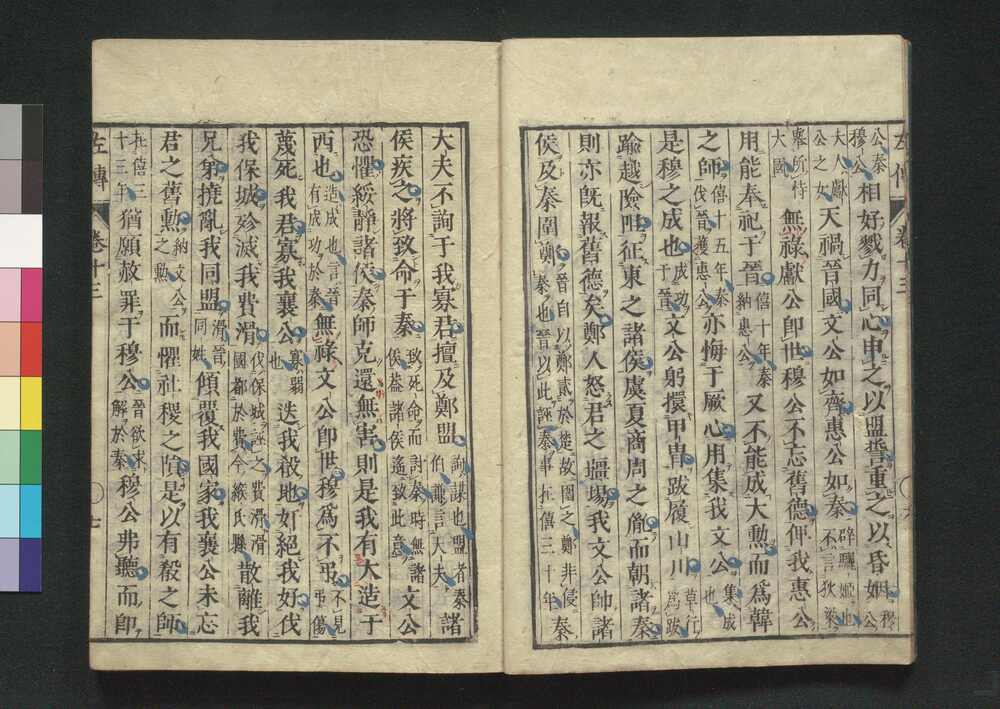 左傳 卷十三
公秦穆公相好戮力同心申之以盟誓重之以昏姻穆公
夫人獻公之女天禍晉國文公如齊惠公如秦辟驪姬也不言狄梁
舉所恃大國無祿獻公即世穆公不忘舊德俾我惠公
用能奉祀于晉僖十年秦納惠公又不能成大勳而為韓
之師僖十五年秦伐晉獲惠公亦悔于厥心用集我文公集成也
是穆之成也成功于晉文公躬擐甲冑跋履山川草行為跋
踰越險阻征東之諸侯虞夏商周之胤而朝諸秦
則亦既報舊德矣鄭人怒君之疆埸我文公帥諸
侯及秦圍鄭晉自以鄭貳於楚故圍之鄭非侵秦也晉以此誣秦事在僖三十年秦
大夫不詢于我寡君擅及鄭盟詢謀也盟者秦伯謙言大夫諸
侯疾之將致命于秦致死命而討秦時無諸侯蓋諸侯遙致此意文公
恐懼綏靜諸侯秦師克還無害則是我有大造于
西也造成也言晉有成功於秦無祿文公即世穆為不弔不見弔傷
蔑死我君寡我襄公寡弱也迭我殽地奸絕我好伐
我保城殄滅我費滑伐保城誣之費滑滑國都於費今緱氏縣散離我
兄弟撓亂我同盟滑晉同姓傾覆我國家我襄公未忘
君之舊勳納文公之勳而懼社稷之隕是以有殽之師
在僖三十三年猶願赦罪于穆公晉欲求解於秦穆公弗聽而即
左傳 卷十三 七